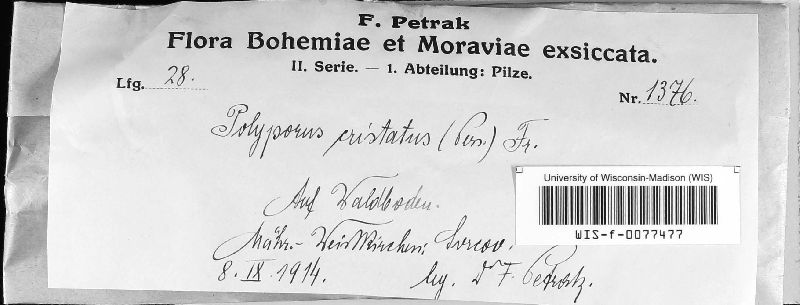 F. Petrak
Flora Bohemiae et Moraviae exsiccata.
II. Serie. — 1. Abteilung: Pilze.
Lfg. 28.
Nr. 1376.
Polyporus cristatus (Pers.) Fr.
University of Wisconsin-Madison (WIS)
WIS-f-0077477
Auf Waldboden.
Mähr.-Weisskirchen:
8. IX. 1914. leg. Dr F. Petrak.